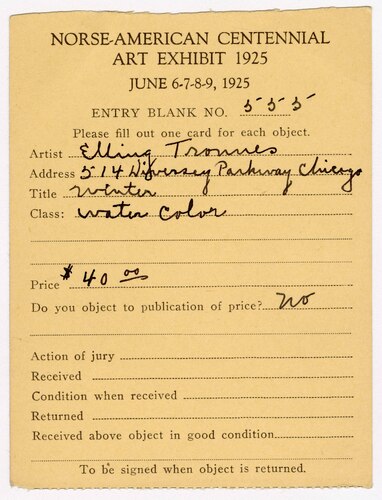 NORSE-AMERICAN CENTENNIAL
ART EXHIBIT 1925
JUNE 6-7-8-9, 1925
ENTRY BLANK NO. 555
Please fill out one card for each object.
Artist Elling Tronnes
Address 514 Diversey Parkway Chicago
Title Winter
Class: Water Color
Price $40 00
Do you object to publication of price? No
Action of jury
Received
Condition when received
Returned
Received above object in good condition
To be signed when object is returned.